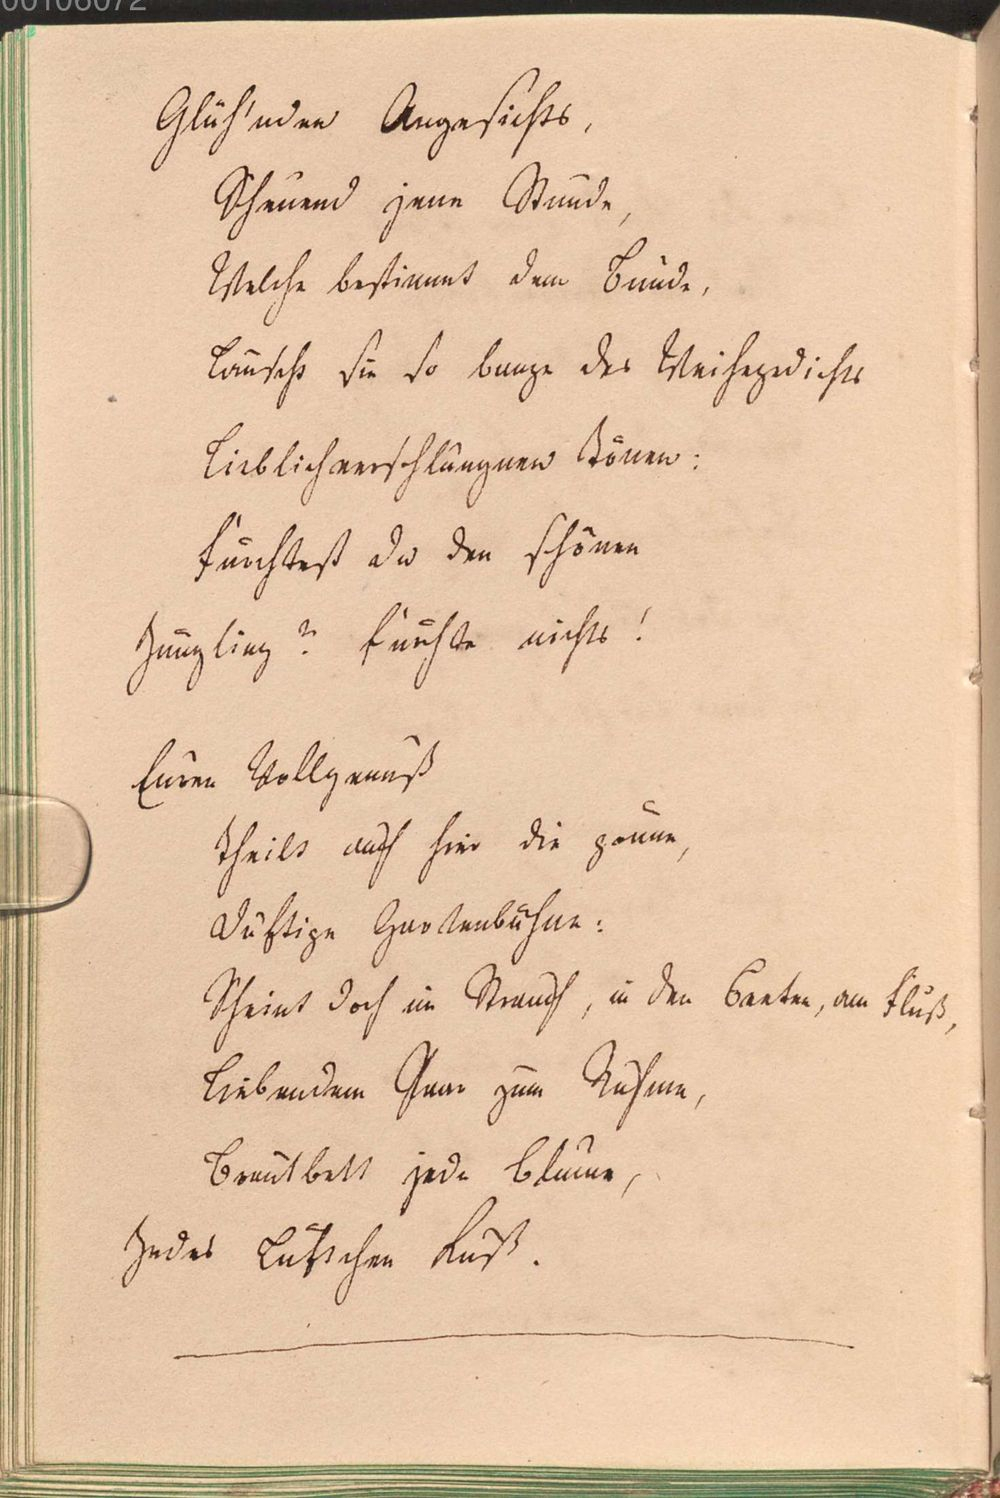 00106072
Glüh'nden Angesichts,
Scheuend jene Stunde,
Welche bestimmt dem Bunde,
Lauscht sie so bange des Weihegedichts
Lieblichverschlungnen Tönen:
Fürchtest du den schönen
Jüngling? Fürchte nichts!
Euren Vollgenuß
Theilt auch hier die grüne,
Duftige Gartenbühne:
Scheint doch im Strauch, in den Beeten, am Fluß,
Liebendem Paar zum Ruhme,
Brautbett jede Blume,
Jedes Lüftchen Kuß.